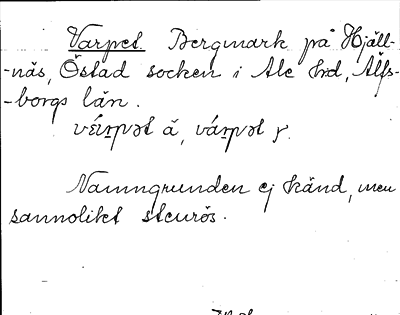 Varpet. Bergmark på Hjäll-
-näs, Östad socken i Ale hrd, Älfs-
-borgs län.
Namngrunden ej känd, men
sannolikt stenrös.